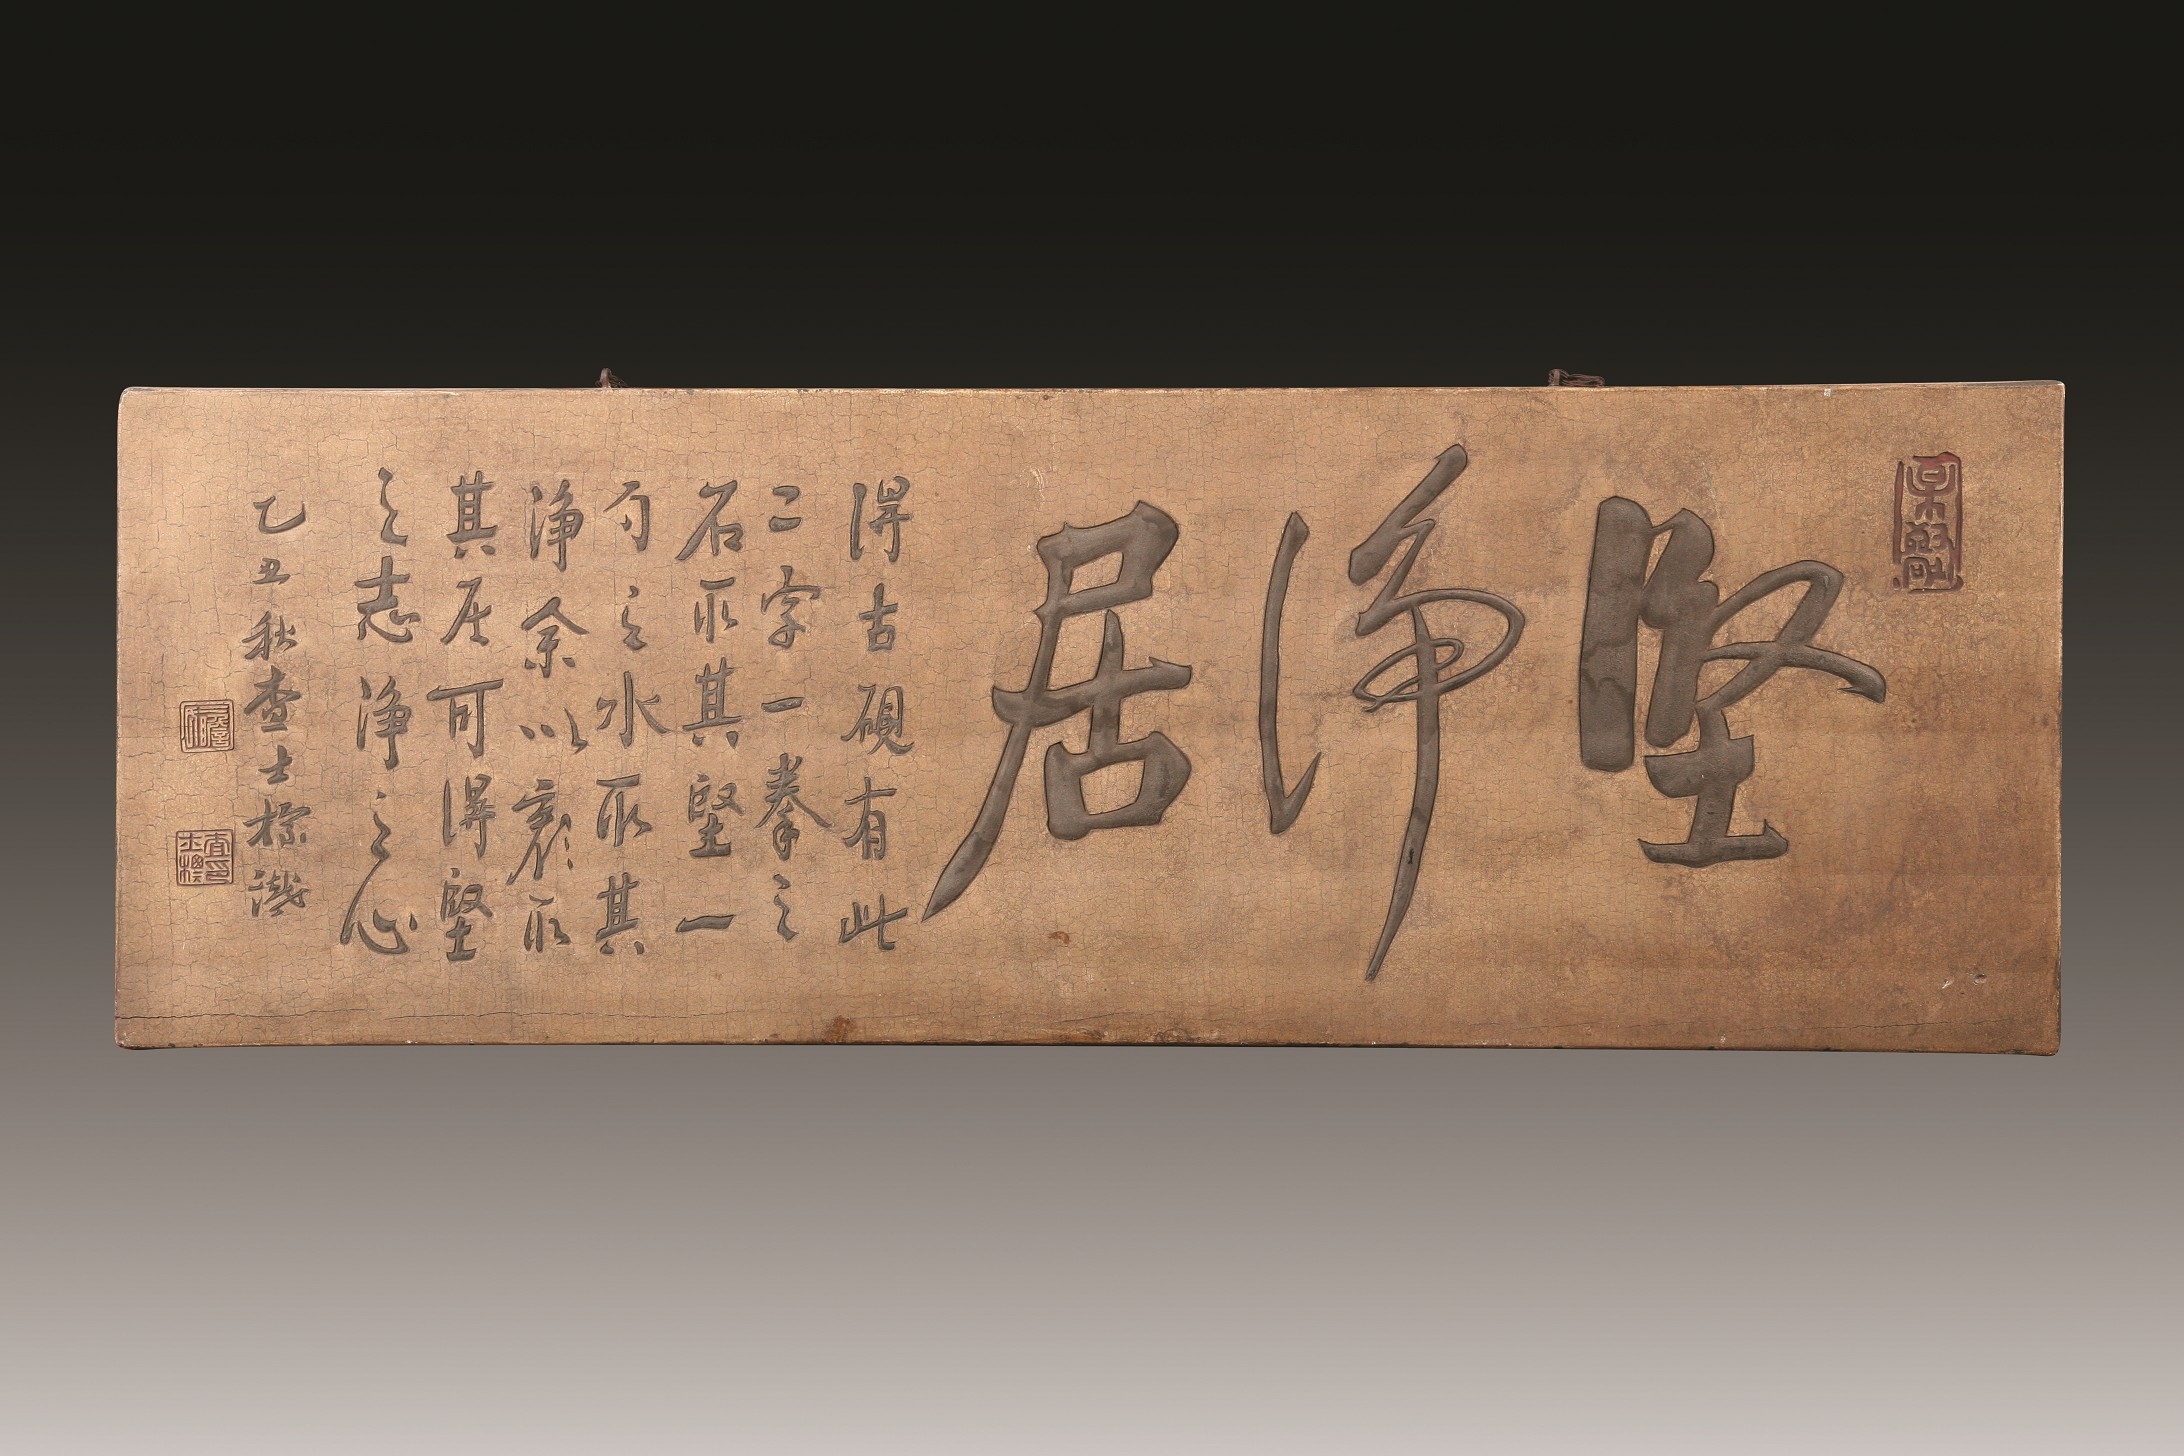 堅淨居
得古硯有此
二字一拳之
石取其堅一
勺之水取其
淨余以取
其居可得堅
之志淨之心
乙丑秋查士標識
查士標印